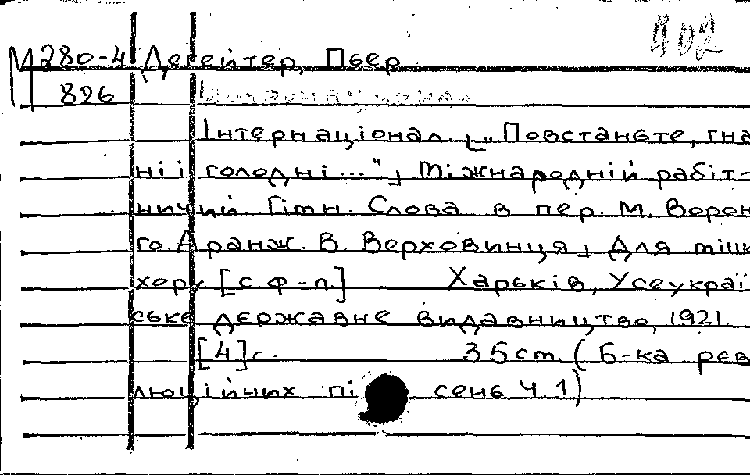 402
М 280-4 Дегейтер, Пьер
826 Интернационал
Інтернаціонал. [„Повстаньте, гна
ні і голодні..."] Міжнародній рабіт-
ничий гімн. Слова в пер. М. Ворон
го. Аранж. В. Верховинця] Для міш
хору [с ф-п.] Харьків, Усеукраї
ське державне видавництво, 1921.
[4] с. 35 cm. (Б-ка рев
люційних пісень Ч. 1)